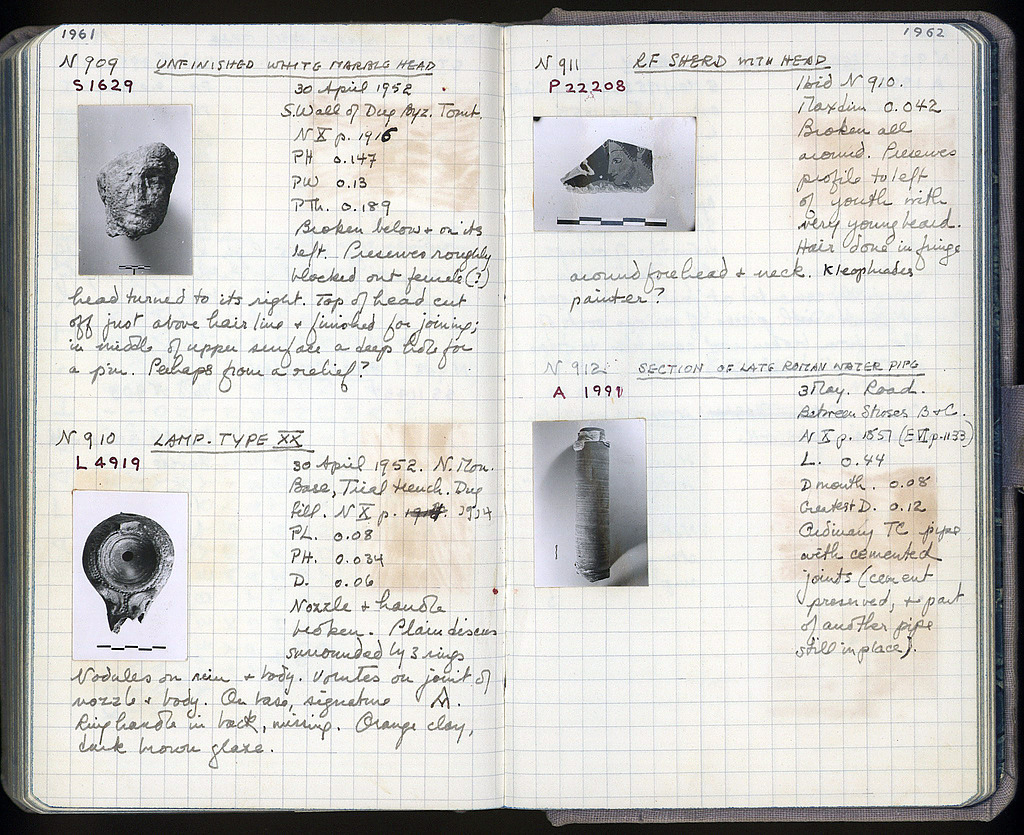 1961
N 909 UNFINISHED WHITE MARBLE HEAD
S 1629
30 April 1952
S. Wall of Dug Byz. Tomt.
N X p. 1916
PH 0.147
PW 0.13
PTh. 0.189
Broken below + on its
left. Preserves roughly
blocked out female (?)
head turned to its right. Top of head cut
off just above hair line + finished for joining;
in middle of upper surface a deep hole for
a pin. Perhaps from a relief?
N 910 LAMP. TYPE XX
L 4919
30 April 1952. N. Mon.
Base, Trial trench. Dug
fill. N X p. 1934
PL. 0.08
PH. 0.034
D. 0.06
Nozzle + handle
broken. Plain discus
surrounded by 3 rings
Nodules on rim + body. Volutes on joint of
nozzle + body. On base, signature A.
Ring handle in back, missing. Orange clay,
dark brown glaze.
1962
N 911 RF SHERD WITH HEAD
P 22208
Ibid N 910.
Max dim 0.042
Broken all
around. Preserves
profile to left
of youth with
very young beard.
Hair done in fringe
around forehead + neck. Kleophrades
painter?
N 912 SECTION OF LATE ROMAN WATER PIPE
A 1991
3 May. Road.
Between Shoses B + C.
N X p. 1857 (E VI p. 1133)
L. 0.44
D mouth. 0.08
Greatest D. 0.12
Ordinary TC pipe
with cemented
joints (cement
preserved, + part
of another pipe
still in place).